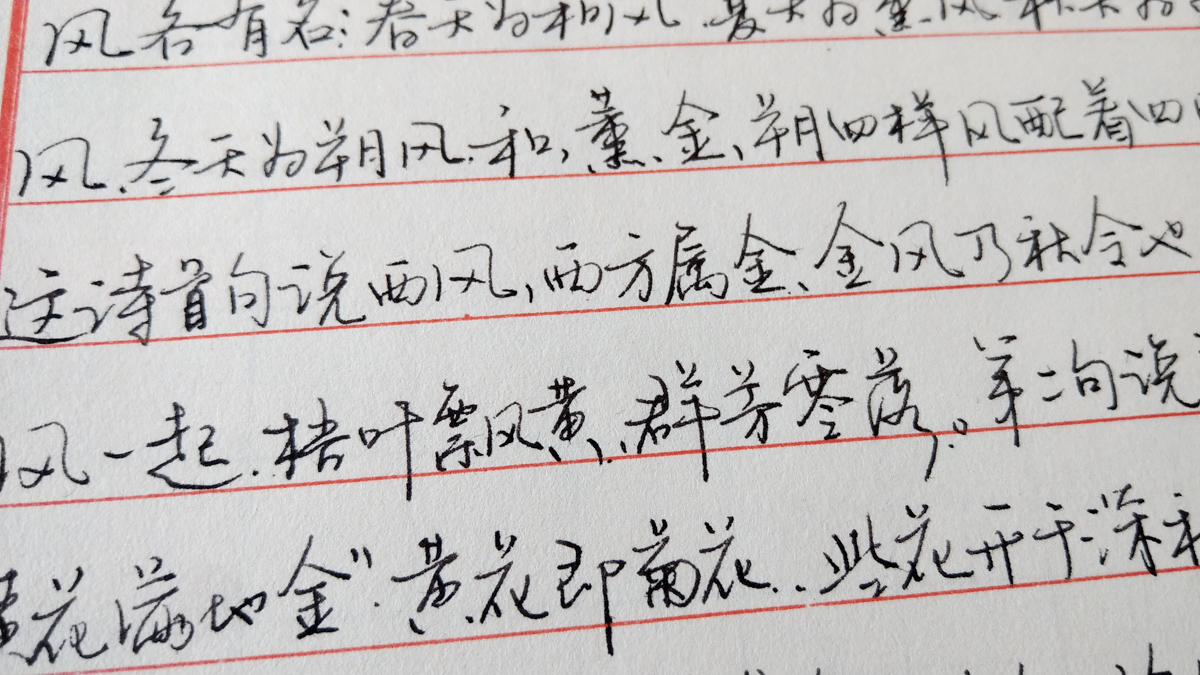 风各有名:春天为和风,夏天为薰风,秋天为
风,冬天为朔风.和、薰、金、朔四样风配着四
这诗首句说西风,西方属金、金风乃秋令也
风一起.梧叶飘风黄,群芳零落,。第二句说
黄花满地金”.黄花即菊花..些花开于深秋